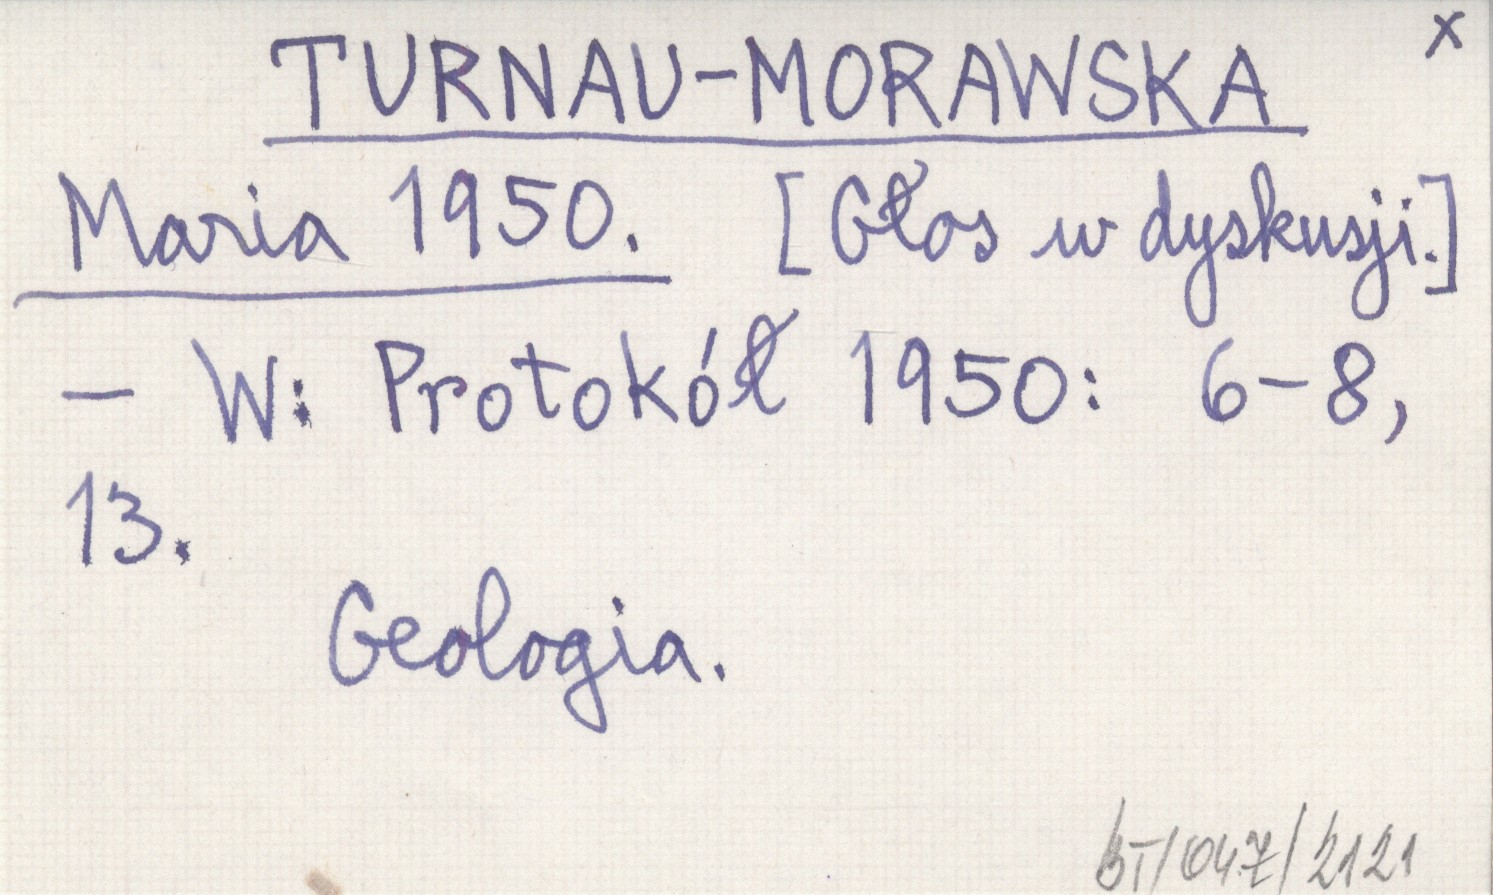 x
TURNAU-MORAWSKA
Maria 1950. [Głos w dyskusji.]
– W: Protokół 1950: 6–8,
13.
Geologia.
BT/047/2121